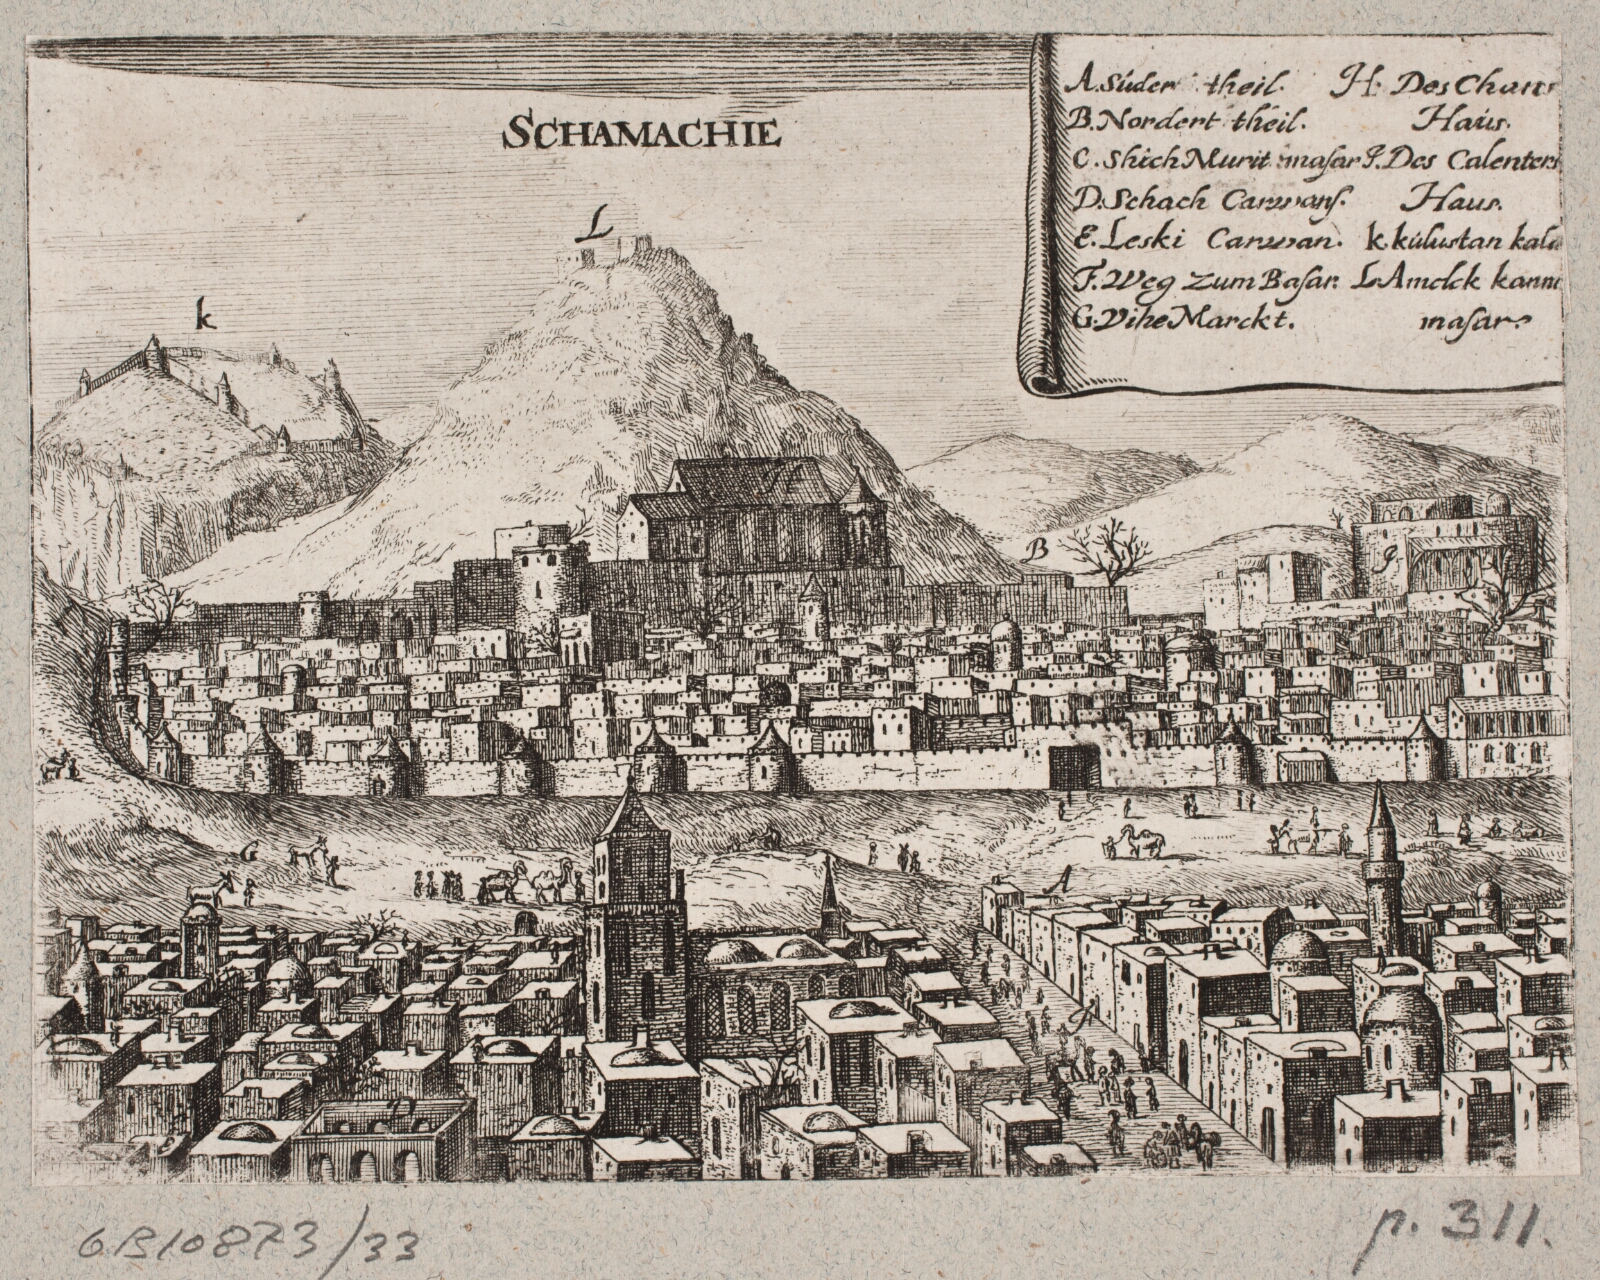 SCHAMACHIE
L
k
A. Súder theil.
B. Nordert theil.
C. Shich Murit masar
D. Schach Carwans.
E. Leski Carwan.
F. Weg zum Basar
G. Vihe Marckt.
H. Des Chans
Haús.
J. Des Calenters
Haus.
k. kúlustan kala
L Amelck kanna
masar.
H
B
J
G
A
F
D
6B10873/33
p. 311.